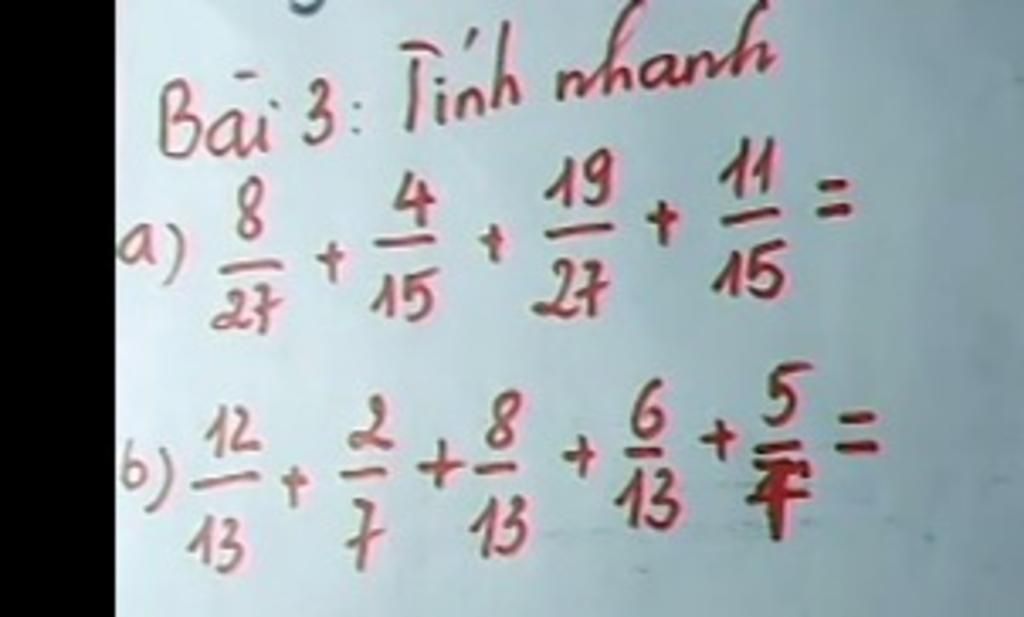 Bài 3: Tính nhanh
a) 8/27 + 4/15 + 19/27 + 11/15 =
b) 12/13 + 2/7 + 8/13 + 6/13 + 5/7 =